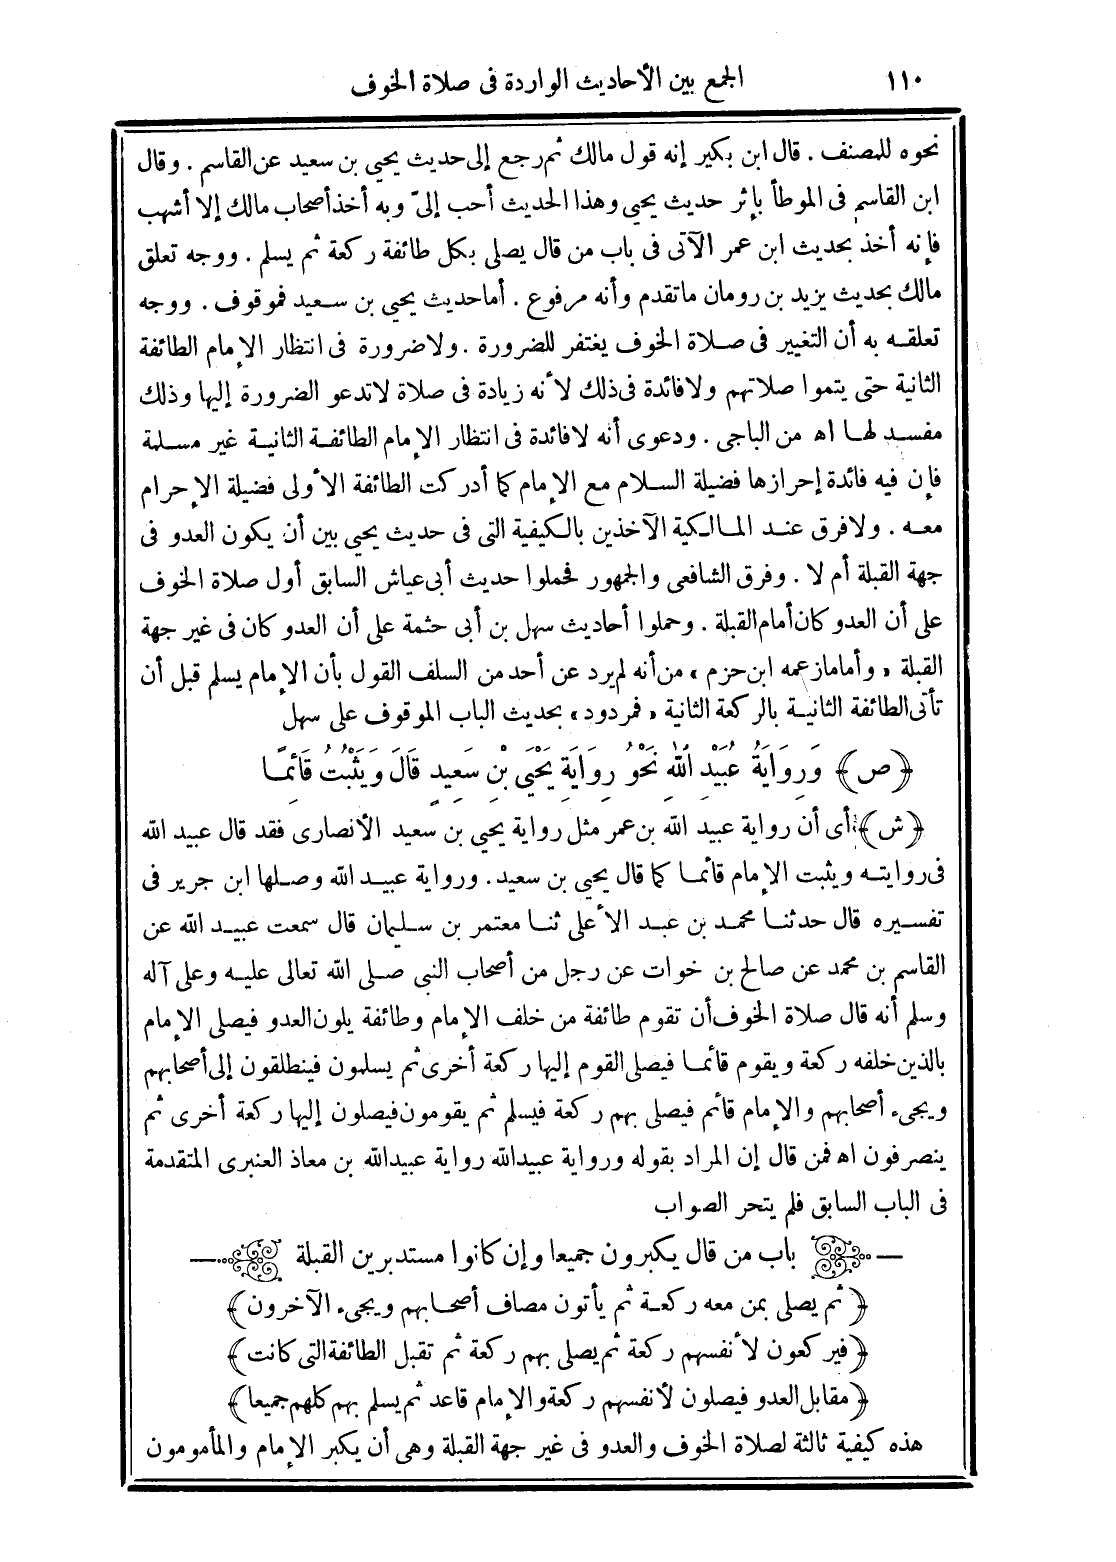 ١١٠ الجمع بين الأحاديث الواردة فى صلاة الخوف
نحوه للمصنف . قال ابن بكير إنه قول مالك ثم رجع إلى حديث يحيى بن سعيد عن القاسم . وقال
ابن القاسم فى الموطأ بإثر حديث يحيى وهذا الحديث أحب إلىّ وبه أخذ أصحاب مالك إلا أشهب
فإنه أخذ بحديث ابن عمر الآتى فى باب من قال يصلى بكل طائفة ركعة ثم يسلم . ووجه تعلق
مالك بحديث يزيد بن رومان ماتقدم وأنه مرفوع . أما حديث يحيى بن سعيد فموقوف . ووجه
تعلقه به أن التغيير فى صلاة الخوف يغتفر للضرورة . ولا ضرورة فى انتظار الإمام الطائفة
الثانية حتى يتموا صلاتهم ولا فائدة فى ذلك لأنه زيادة فى صلاة لاتدعو الضرورة إليها وذلك
مفسد لها اه من الباجى . ودعوى أنه لافائدة فى انتظار الإمام الطائفة الثانية غير مسلمة
فإن فيه فائدة إحرازها فضيلة السلام مع الإمام كما أدركت الطائفة الأولى فضيلة الإحرام
معه . ولا فرق عند المالكية الآخذين بالكيفية التى فى حديث يحيى بين أن يكون العدو فى
جهة القبلة أم لا . وفرق الشافعى والجمهور فحملوا حديث أبى عياش السابق أول صلاة الخوف
على أن العدو كان أمام القبلة . وحملوا أحاديث سهل بن أبى حثمة على أن العدو كان فى غير جهة
القبلة « وأما مازعمه ابن حزم » من أنه لم يرد عن أحد من السلف القول بأن الإمام يسلم قبل أن
تأتى الطائفة الثانية بالركعة الثانية « فمردود » بحديث الباب الموقوف على سهل
﴿ص﴾ وَرِوَايَةُ عُبَيْدِ اللهِ نَحْوُ رِوَايَةِ يَحْيَى بْنِ سَعِيدٍ قَالَ وَيَثْبُتُ قَائِمًا
﴿ش﴾ أى أن رواية عبيد الله بن عمر مثل رواية يحيى بن سعيد الأنصارى فقد قال عبيد الله
فى روايته ويثبت الإمام قائما كما قال يحيى بن سعيد . ورواية عبيد الله وصلها ابن جرير فى
تفسيره قال حدثنا محمد بن عبد الأعلى ثنا معتمر بن سليمان قال سمعت عبيد الله عن
القاسم بن محمد عن صالح بن خوات عن رجل من أصحاب النبى صلى الله تعالى عليه وعلى آله
وسلم أنه قال صلاة الخوف أن تقوم طائفة من خلف الإمام وطائفة يلون العدو فيصلى الإمام
بالذين خلفه ركعة ويقوم قائما فيصلى القوم إليها ركعة أخرى ثم يسلمون فينطلقون إلى أصحابهم
ويجىء أصحابهم والإمام قائم فيصلى بهم ركعة فيسلم ثم يقومون فيصلون إليها ركعة أخرى ثم
ينصرفون اه فمن قال إن المراد بقوله ورواية عبيد الله رواية عبيد الله بن معاذ العنبرى المتقدمة
فى الباب السابق فلم يتحر الصواب
— باب من قال يكبرون جميعا وإن كانوا مستدبرين القبلة —
﴿ثم يصلى بمن معه ركعة ثم يأتون مصاف أصحابهم ويجىء الآخرون﴾
﴿فيركعون لأنفسهم ركعة ثم يصلى بهم ركعة ثم تقبل الطائفة التى كانت﴾
﴿مقابل العدو فيصلون لأنفسهم ركعة والإمام قاعد ثم يسلم بهم كلهم جميعا﴾
هذه كيفية ثالثة لصلاة الخوف والعدو فى غير جهة القبلة وهى أن يكبر الإمام والمأمومون